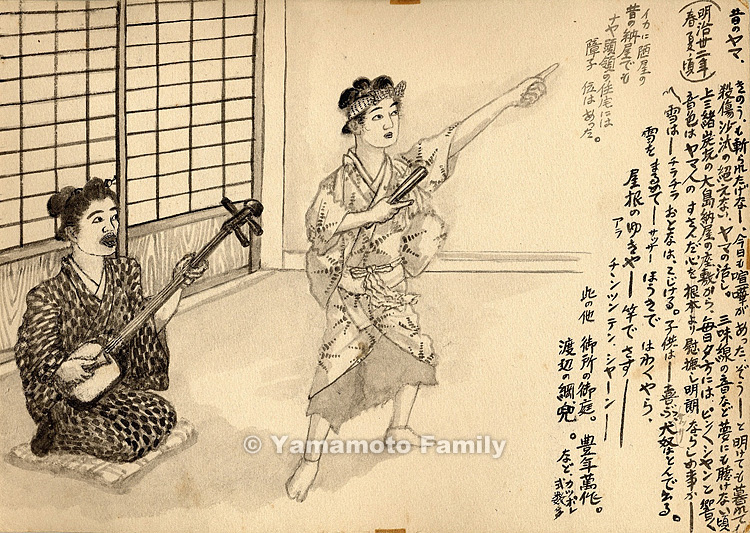 昔のヤマ、
(明治卅二年
春夏頃)
きのう、も斬られたげなー、今日も喧嘩があったぞうーと明けても暮れても
殺傷沙汰の絶えないヤマの活し。三味線の音など夢にも聴けない頃
上三緒炭坑の大島納屋の座敷から、毎日夕方には、ピンヽシャンと響く
音色はヤマ人の すさんだ心を根本より慰撫し明朗ならしめ事がー
〽雪はーチラチラ おとなは、こじける。子供はー喜ぶ犬は とんで出る。
雪を まるめてーサッサー ほうきで はわくやら、
屋根のゆきやー竿で さすー
アラ チンツンテン、シャーンー
此の他 御所の御庭。豊年萬作。
渡辺の綱兜。など、カッポレ
式数多
イカに陋屋の
昔の納屋でも
ナヤ頭領の住宅には
障子 位はあった。
© Yamamoto Family